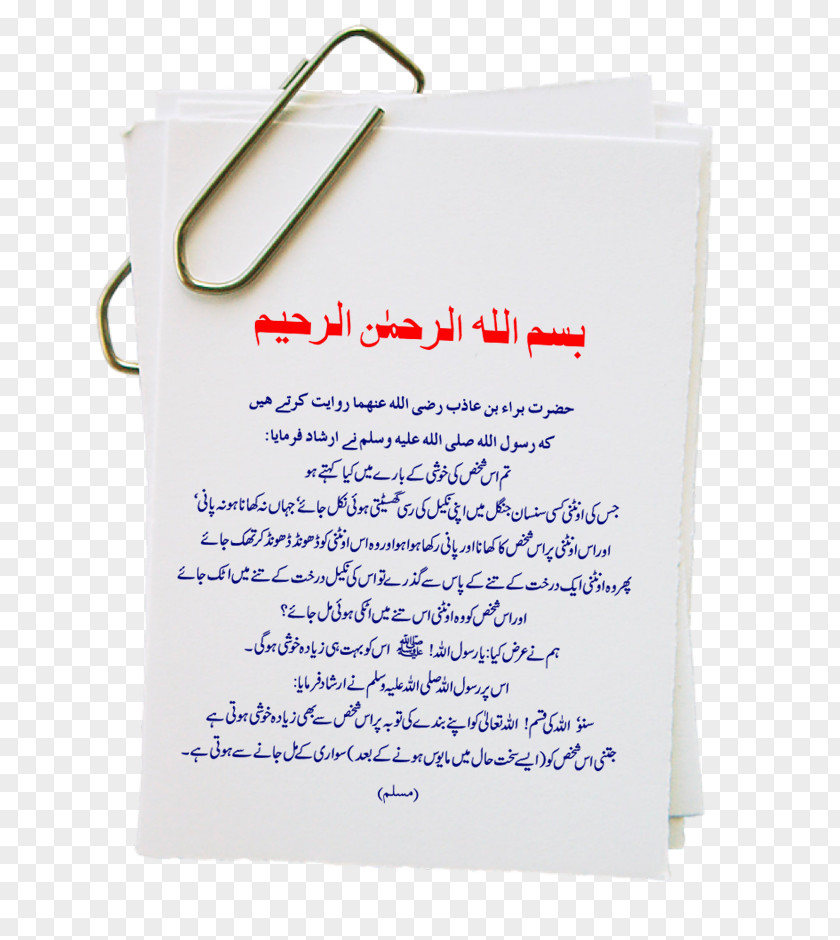 بسم الله الرحمٰن الرحیم
حضرت براء بن عاذب رضی الله عنهما روایت کرتے هیں
که رسول الله صلی الله علیه وسلم نے ارشاد فرمایا:
تم اس شخص کی خوشی کے بارے میں کیا کہتے ہو
جس کی اونٹنی کسی سنسان جنگل میں اپنی نکیل کی رسی گھسیٹتی ہوئی نکل جائے‘ جہاں نہ کھانا ہو نہ پانی‘
اور اس اونٹنی پر اس شخص کا کھانا اور پانی رکھا ہوا ہو اور وہ اس اونٹنی کو ڈھونڈ ڈھونڈ کر تھک جائے
پھر وہ اونٹنی ایک درخت کے تنے کے پاس سے گذرے تو اس کی نکیل درخت کے تنے میں اٹک جائے
اور اس شخص کو وہ اونٹنی اس تنے میں اٹکی ہوئی مل جائے؟
ہم نے عرض کیا: یا رسول اللہ! ﷺ اس کو بہت ہی زیادہ خوشی ہوگی۔
اس پر رسول اللہ صلی اللہ علیہ وسلم نے ارشاد فرمایا:
سنو! اللہ کی قسم! اللہ تعالیٰ کو اپنے بندے کی توبہ پر اس شخص سے بھی زیادہ خوشی ہوتی ہے
جتنی اس شخص کو (ایسے سخت حال میں مایوس ہونے کے بعد) سواری کے مل جانے سے ہوتی ہے۔
(مسلم)